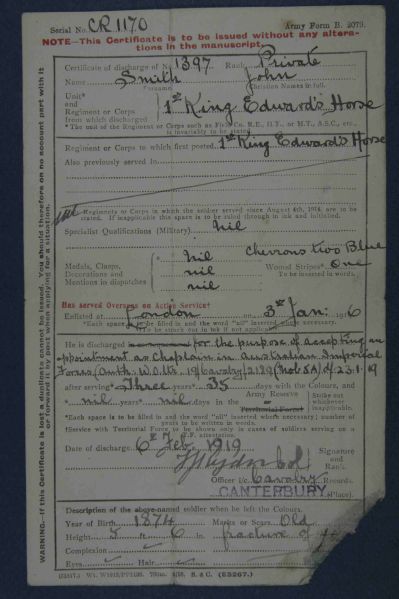 Serial No. CR 1170 Army Form B. 2079.
NOTE—This Certificate is to be issued without any altera-
tions in the manuscript.
Certificate of discharge of No. 1397 Rank Private
Name Smith John
Surname Christian Names in full.
Unit*
and
Regiment or Corps
from which discharged
1st King Edward's Horse
*The unit of the Regiment or Corps such as Field Co. R.E., H.T., or M.T., A.S.C., etc.,
is invariably to be stated.
Regiment or Corps to which first posted 1st King Edward's Horse
Also previously served in
Regiments or Corps in which the soldier served since August 4th, 1914, are to be
stated. If inapplicable this space is to be ruled through in ink and initialled.
Specialist Qualifications (Military) nil
Medals, Clasps,
Decorations and
Mentions in dispatches
nil
nil
nil
Chevrons two Blue
Wound Stripes* One
To be inserted in words.
Has served Overseas on Active Service†
Enlisted at London on 3rd Jan: 1916
*Each space is to be filled in and the word "nil" inserted where necessary.
†To be struck out in ink if not applicable.
He is discharged for the purpose of accepting an
appointment as Chaplain in Australian Imperial
Force (Auth: W.O. 19/Cavalry/2189 of 23.1.19
after serving* Three years* 35 days with the Colours, and
* nil years* nil days in the Army Reserve
or
Territorial Force†
Strike out
whichever
inapplicable.
*Each space is to be filled in and the word "nil" inserted where necessary; number of
years to be written in words.
†Service with Territorial Force to be shown only in cases of soldiers serving on a
T.F. attestation.
Date of discharge 6th Feb. 1919
Col Signature
and
Rank.
Officer i/c. Cavalry Records.
CANTERBURY (Place).
Description of the above-named soldier when he left the Colours.
Year of Birth 1874 Marks or Scars Old
Height 5 ft 6 in. fracture of
Complexion
Eyes Hair
WARNING.—If this Certificate is lost a duplicate cannot be issued. You should therefore on no account part with it
or forward it by post when applying for a situation.